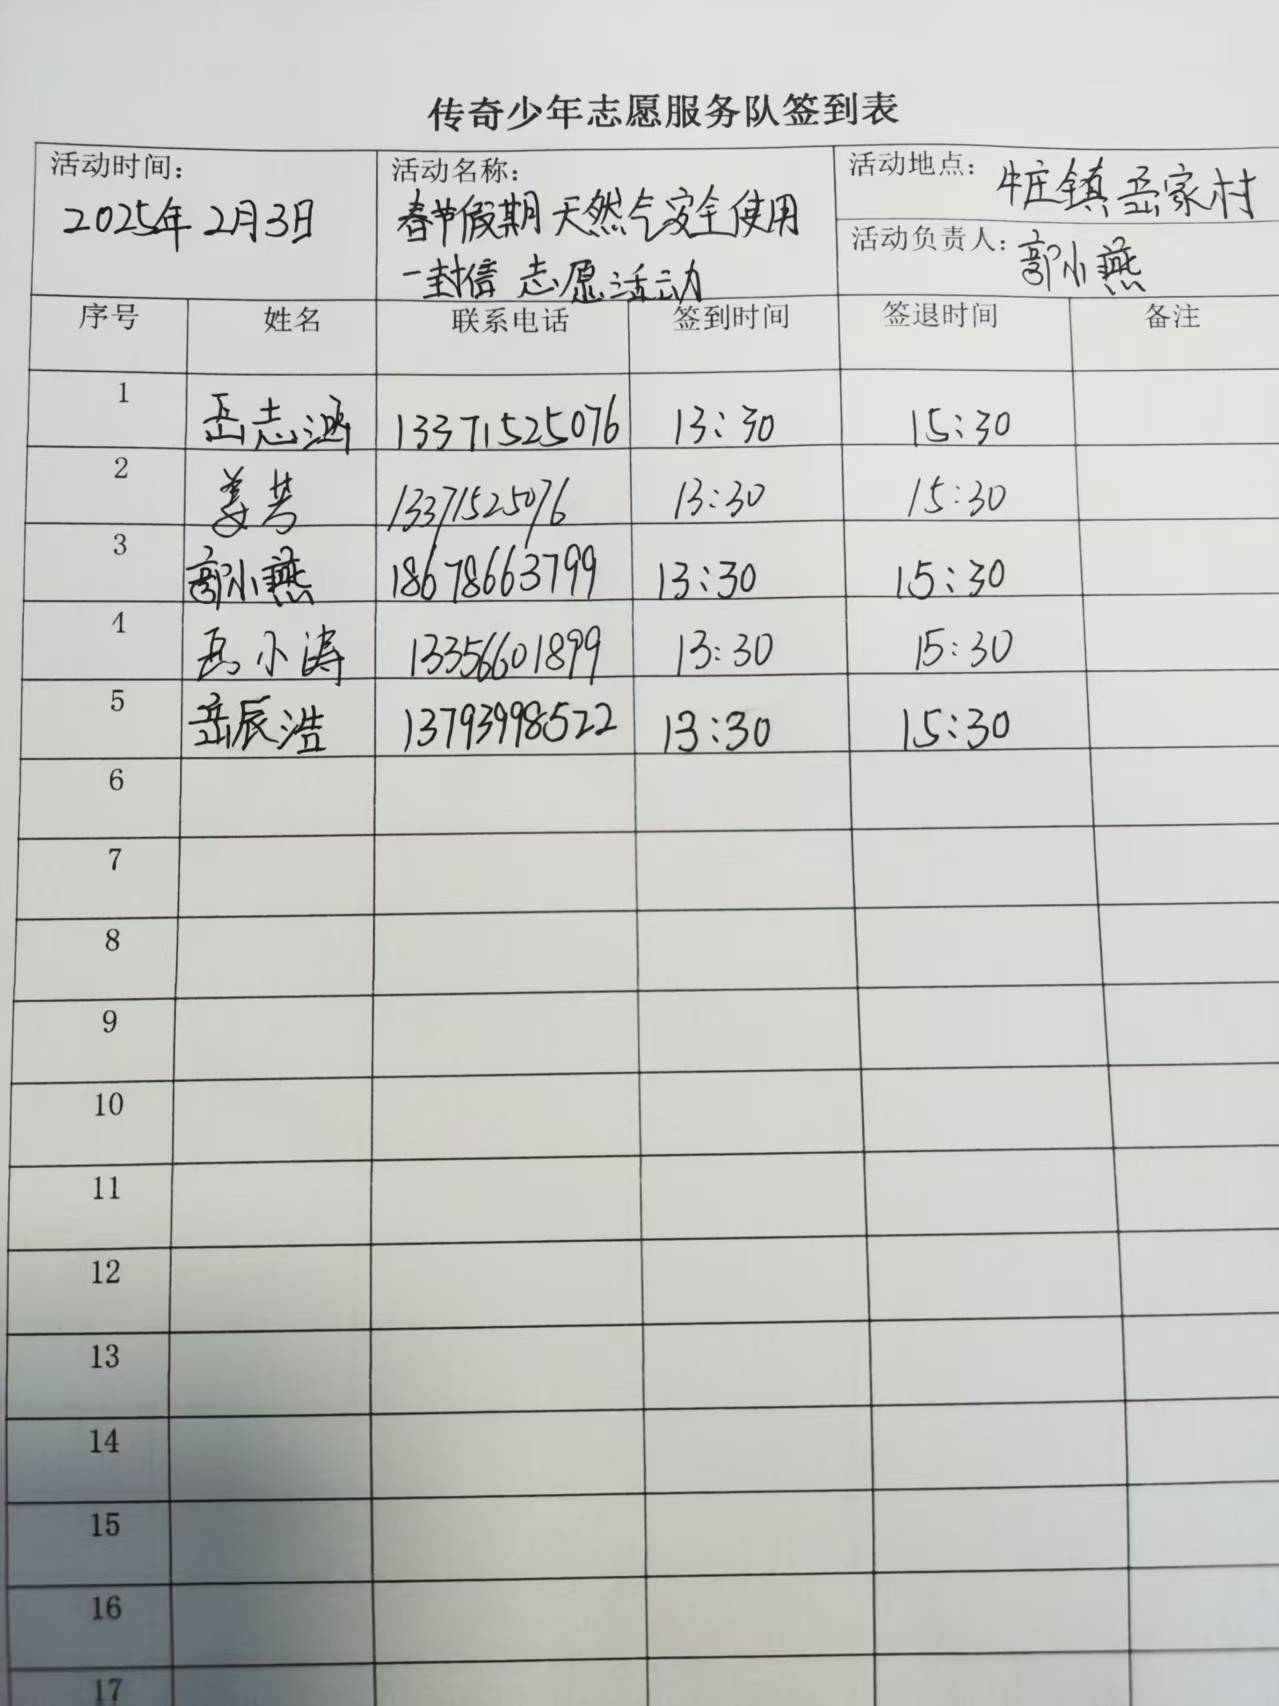 传奇少年志愿服务队签到表
活动时间：
2025年2月3日
活动名称：
春节假期天然气安全使用
一封信 志愿活动
活动地点：牛庄镇岳家村
活动负责人：郭小燕
序号 姓名 联系电话 签到时间 签退时间 备注
1 岳志涵 13371525076 13:30 15:30
2 姜芳 13371525076 13:30 15:30
3 郭小燕 18678663799 13:30 15:30
4 岳小涛 13356601899 13:30 15:30
5 岳辰浩 13793998522 13:30 15:30
6
7
8
9
10
11
12
13
14
15
16
17